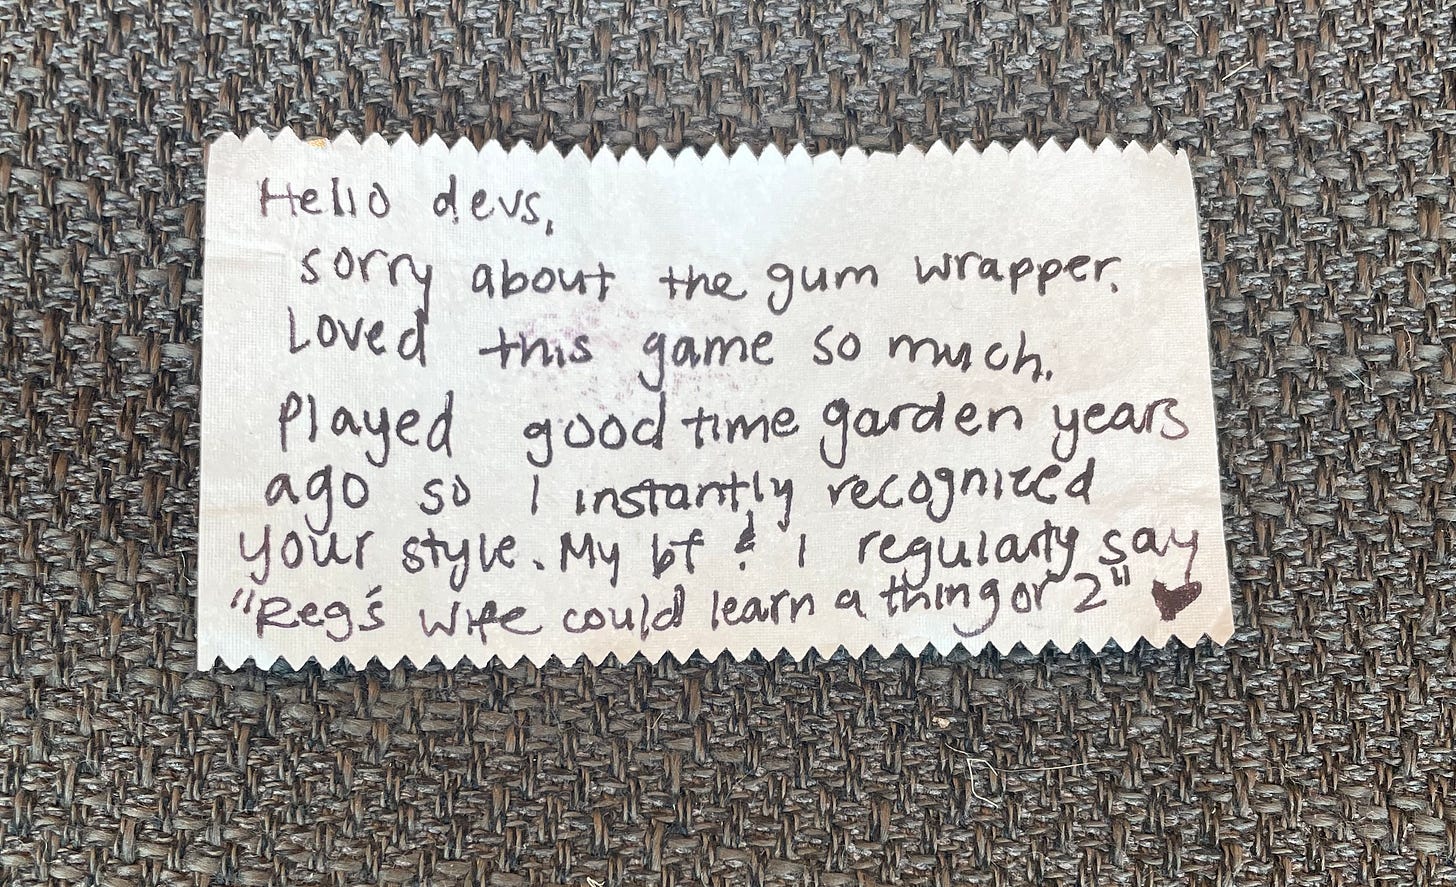 Hello devs,
sorry about the gum wrapper.
Loved this game so much.
Played good time garden years
ago so I instantly recognized
your style. My bf & I regularly say
"Reg's wife could learn a thing or 2" ♥